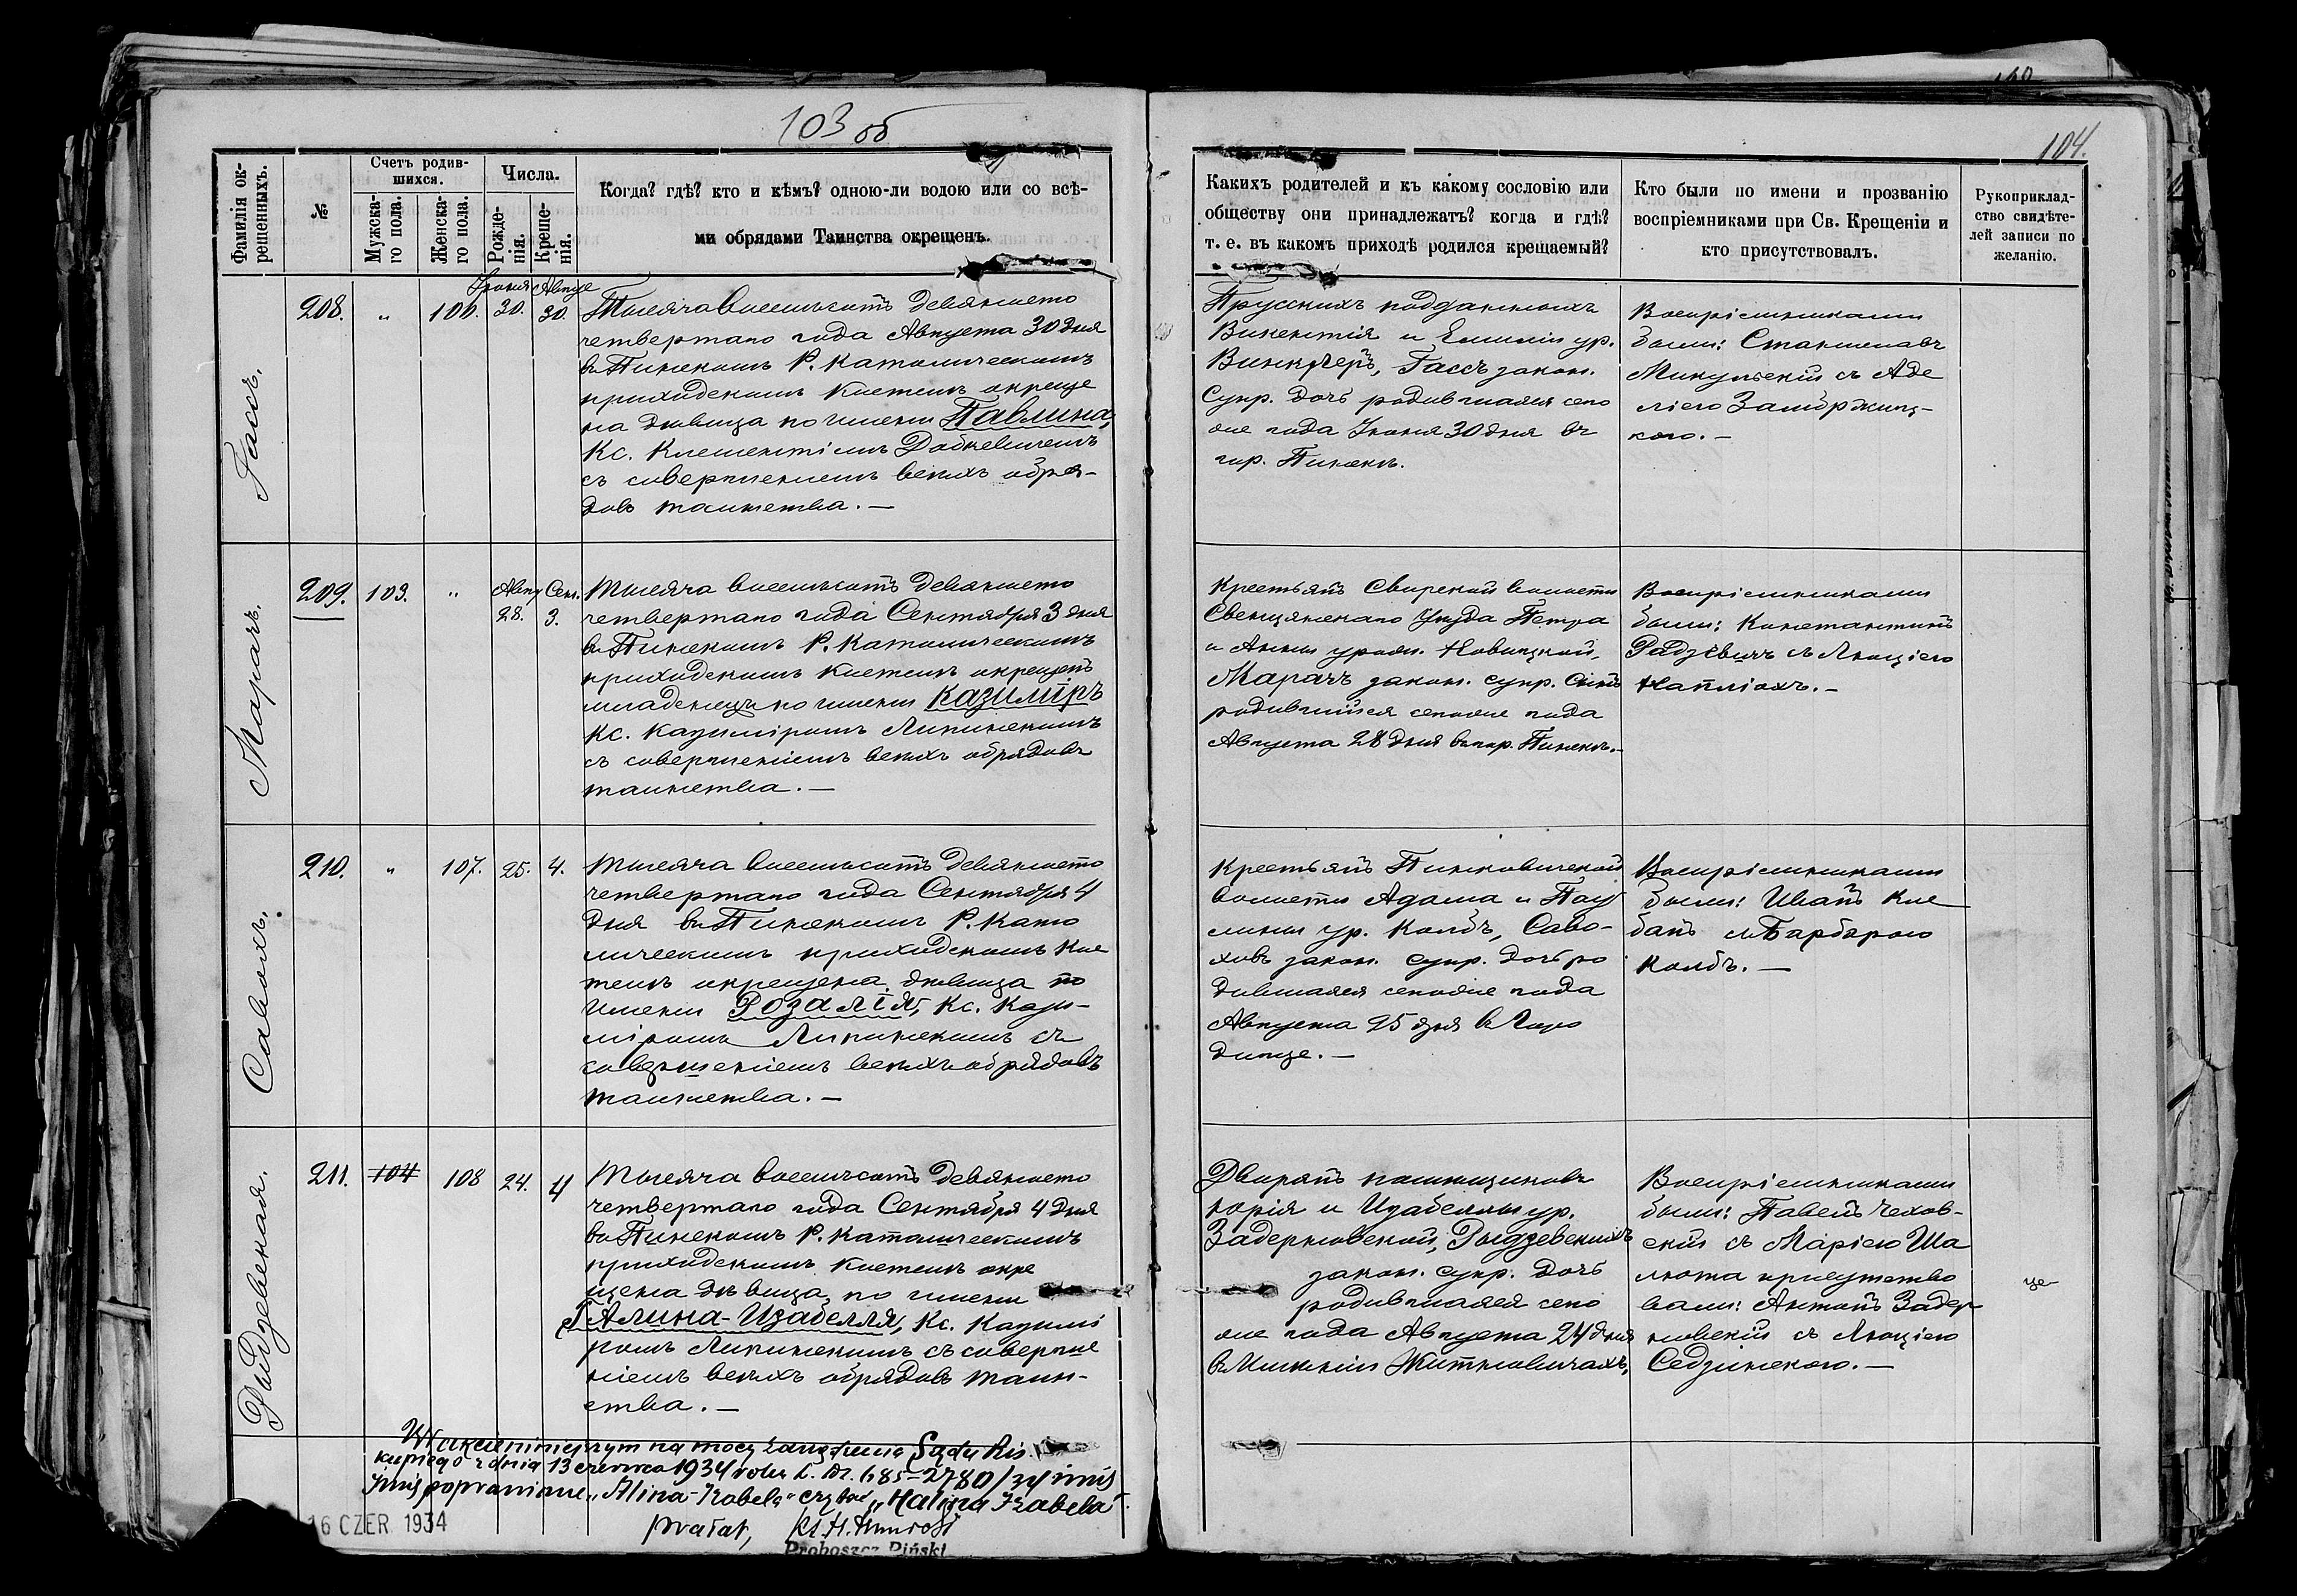 103 об
104.
Фамилія ок-
решенныхъ.
№
Счетъ родив-
шихся.
Мужска-
го пола.
Женска-
го пола.
Числа.
Рожде-
нія.
Креще-
нія.
Когда? гдѣ? кто и кѣмъ? одною-ли водою или со всѣ-
ми обрядами Таинства окрещенъ.
Какихъ родителей и къ какому сословію или
обществу они принадлежатъ? когда и гдѣ?
т. е. въ какомъ приходѣ родился крещаемый?
Кто были по имени и прозванію
воспріемниками при Св. Крещеніи и
кто присутствовалъ.
Рукоприклад-
ство свидѣте-
лей записи по
желанію.
Гассъ.
208. „ 106. Іюня 30. Авгус 30.
Тысяча восемьсотъ девяносто
четвертаго года Августа 30 дня
въ Пинскомъ Р. Католическомъ
приходскомъ костелѣ окреще
на дѣвица по имени Павлина,
Кс. Клементіемъ Добкевичемъ
съ совершеніемъ всѣхъ обря-
довъ таинства. —
Прусскихъ подданныхъ
Викентія и Емиліи ур.
Винклеръ, Гассъ закон.
Супр. дочь родившаяся сего
же года Іюня 30 дня въ
гор. Пинскѣ.
Воспріемниками
были: Станиславъ
Микульскій съ Аде
лею
кою. —
Марачъ.
209. 103. „ Авгу 28. Сен. 3.
Тысяча восемьсотъ девяносто
четвертаго года Сентября 3 дня
въ Пинскомъ Р. Католическомъ
приходскомъ костелѣ окрещенъ
младенецъ по имени Казиміръ
Кс. Казиміромъ Липинскимъ
съ совершеніемъ всѣхъ обрядовъ
таинства. —
Крестьянъ Свирской волости
Свенцянскаго Уѣзда Петра
и Анны урожд. Новицкой,
Марачъ закон. супр. Сынъ
родившійся сего же года
Августа 28 дня въ гор. Пинскѣ. —
Воспріемниками
были: Константинъ
Радзевичъ съ Люціею
Савлохъ.
210. „ 107. 25. 4.
Тысяча восемьсотъ девяносто
четвертаго года Сентября 4
дня въ Пинскомъ Р. Като
лическомъ приходскомъ кос
телѣ окрещена дѣвица по
имени Розалія, Кс. Кази-
міромъ Липинскимъ съ
совершеніемъ всѣхъ обрядовъ
таинства. —
Крестьянъ Пинковичской
волости Адама и Пау
лины ур. Колбъ, Саво-
ховъ закон. супр. дочь ро
дившаяся сего же года
Августа 25 дня въ Горо
дище. —
Воспріемниками
были: Иванъ Кле
банъ съ Барбарою
Колбъ. —
Рыдзевская.
211. 104 108 24. 4
Тысяча восемьсотъ девяносто
четвертаго года Сентября 4 дня
въ Пинскомъ Р. Католическомъ
приходскомъ костелѣ окре
щена дѣвица по имени
Галина-Изабелля, Кс. Казимі
ромъ Липинскимъ съ соверше
ніемъ всѣхъ обрядовъ таин-
ства. —
Дворянъ помѣщиковъ
и Изабеллы ур.
Задерновской, Рыдзевскихъ
закон. супр. дочь
родившаяся сего
же года Августа 24 дня
въ имѣніи Житновичахъ,
Воспріемниками
были: Павелъ Чехов-
скій съ Маріею Ша
люта присутство
вали: Антонъ Задер
новскій съ Люціею
Седзинскою. —
W akcie niniejszym na mocy zarządzenia Sądu Bis-
kupiego z dnia 13 czerwca 1934 roku L. dz. 685-2780/34 imię
imię poprawione „Alina-Izabela" czytać „Halina Izabela".
prałat,
16 CZER. 1934
Proboszcz Piński